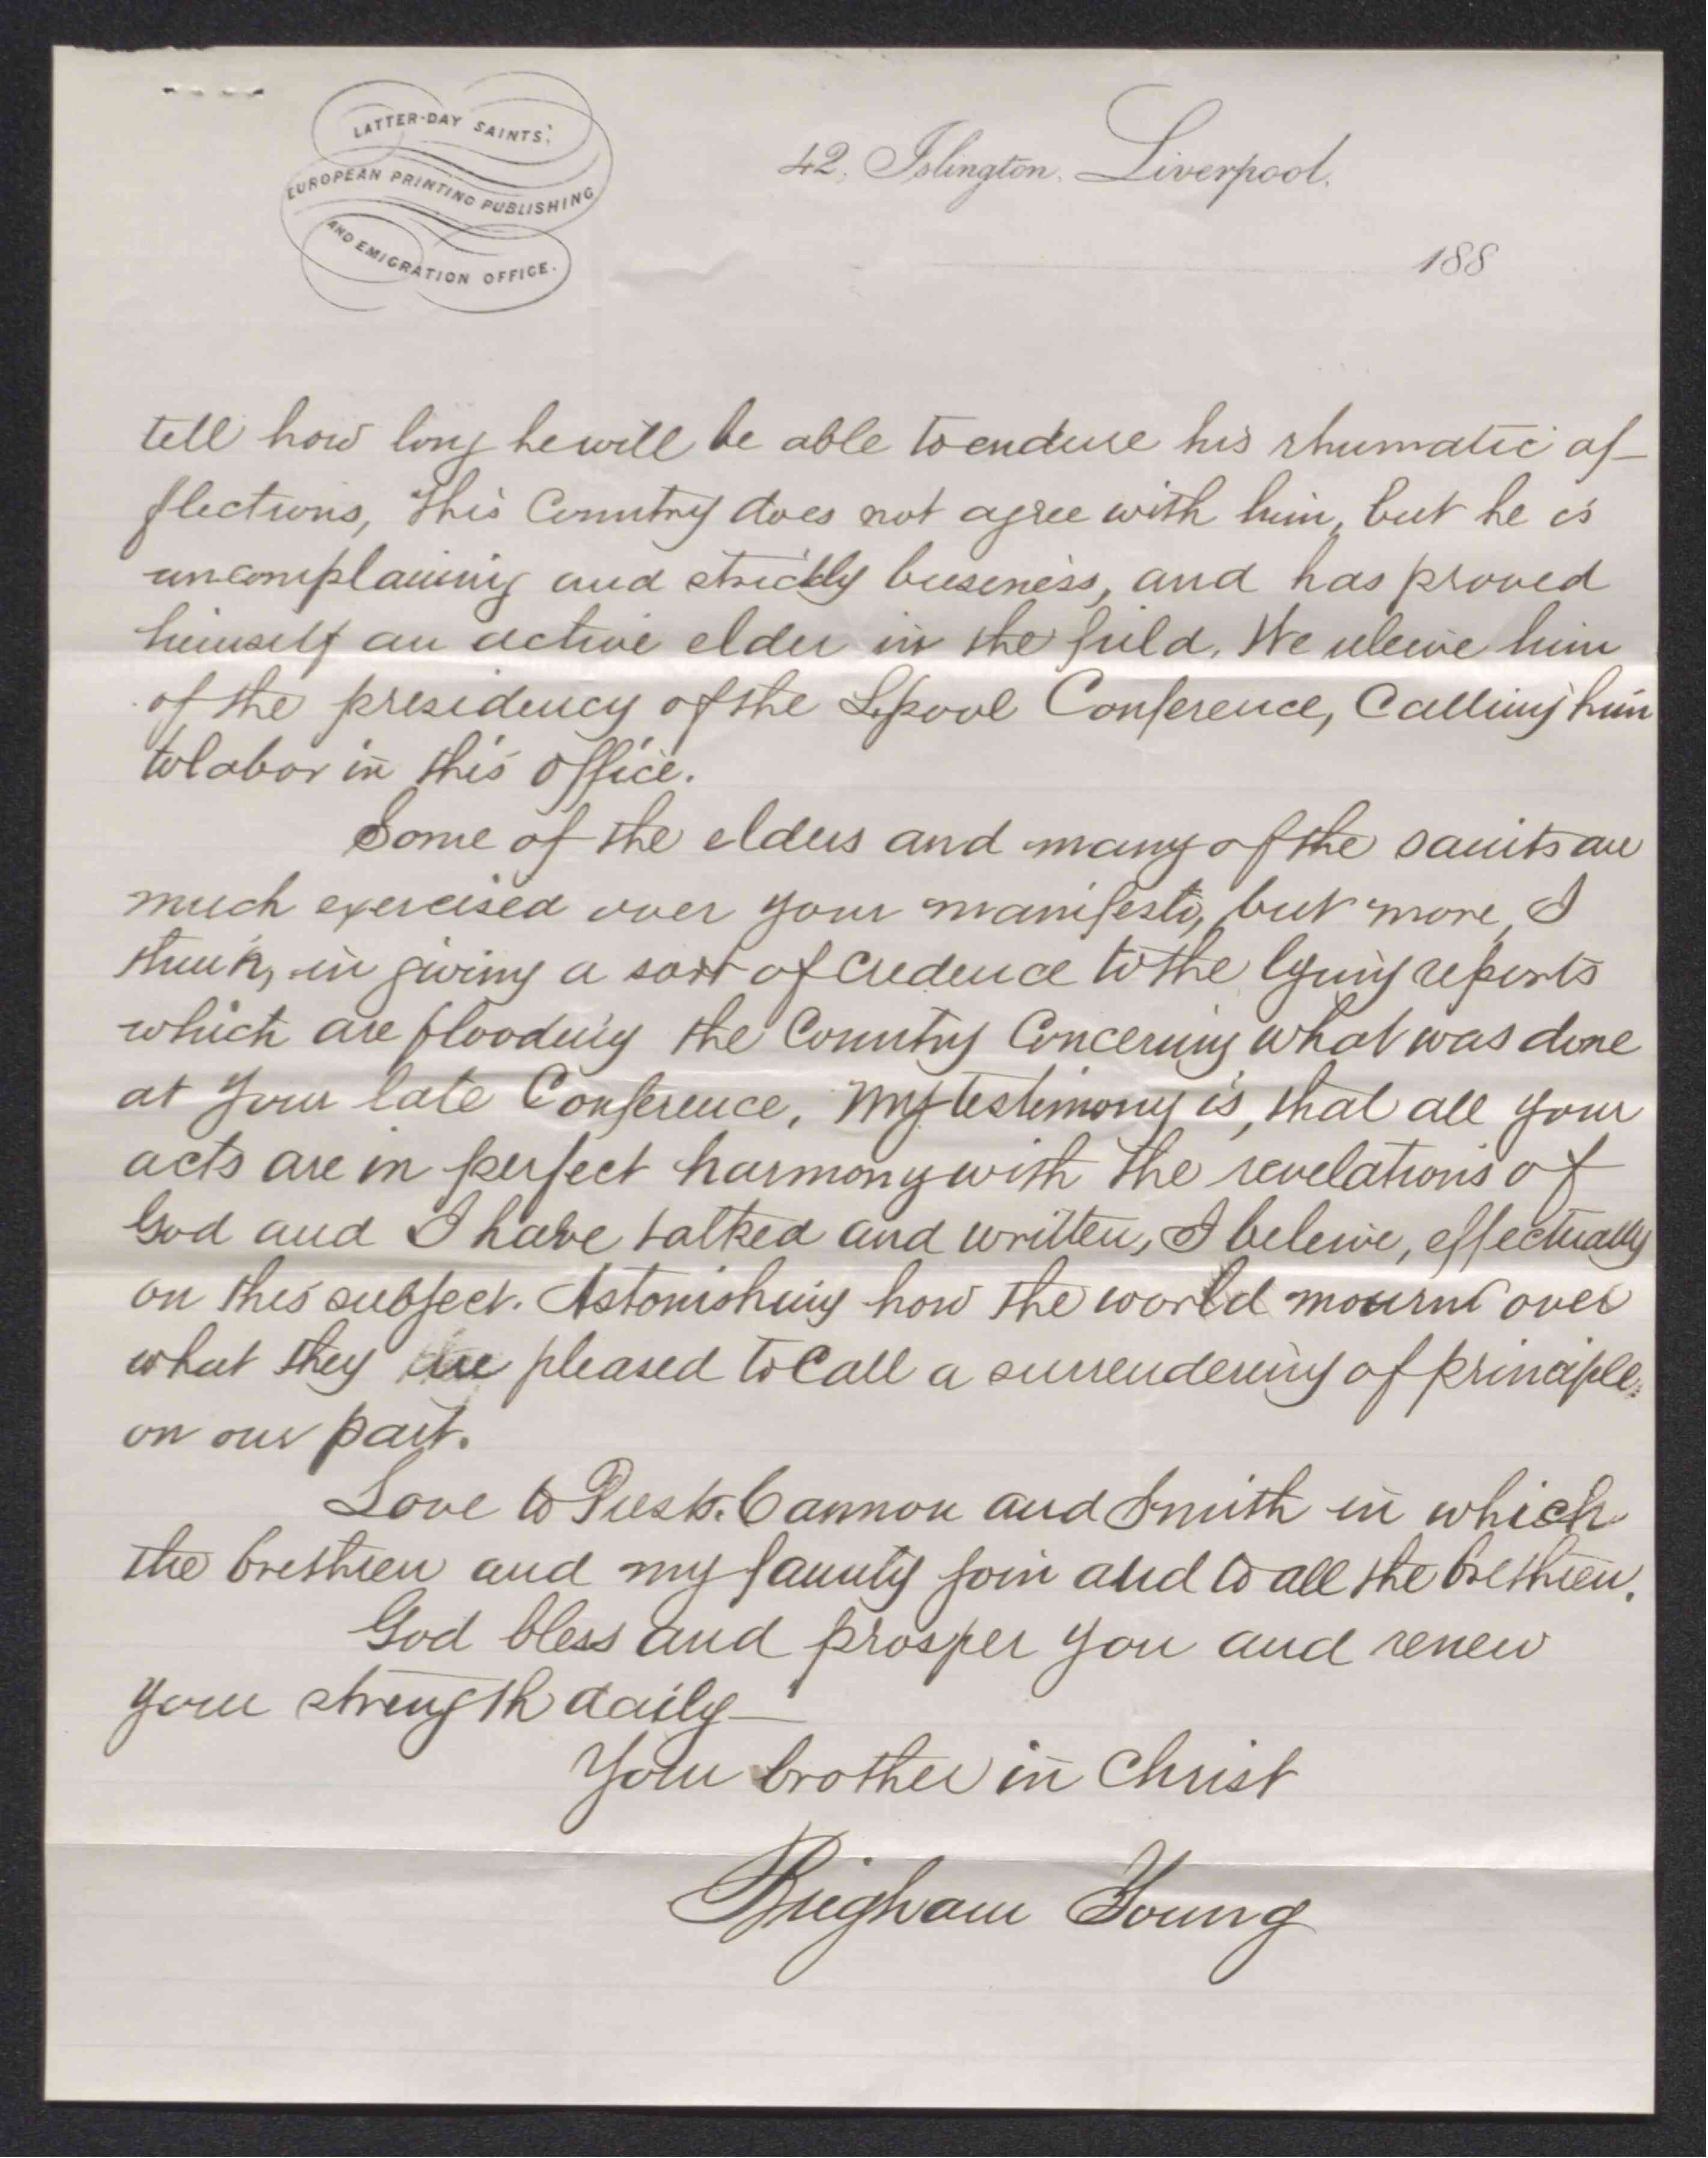 LATTER-DAY SAINTS'
EUROPEAN PRINTING PUBLISHING
AND EMIGRATION OFFICE.
42, Islington, Liverpool.
188
tell how long he will be able to endure his rhumatic af-
flections, this Country does not agree with him, but he is
uncomplaining and strickly buseness, and has proved
himself an active elder in the field. We releive him
of the presidency of the L.pool Conference, Calling him
to labor in this office.
Some of the elders and many of the saints are
much exercised over your manifesto, but more, I
think, in giving a sort of credence to the lying reports
which are flooding the Country Concerning what was done
at your late Conference. My testimony is, that all your
acts are in perfect harmony with the revelations of
God and I have talked and written, I beleive, effectually
on this subject. Astonishing how the world mourns over
what they are pleased to Call a surrendering of principle,
on our part.
Love to Prests. Cannon and Smith in which
the brethren and my family join and to all the brethren.
God bless and prosper you and renew
your strength daily—
Your brother in Christ
Brigham Young